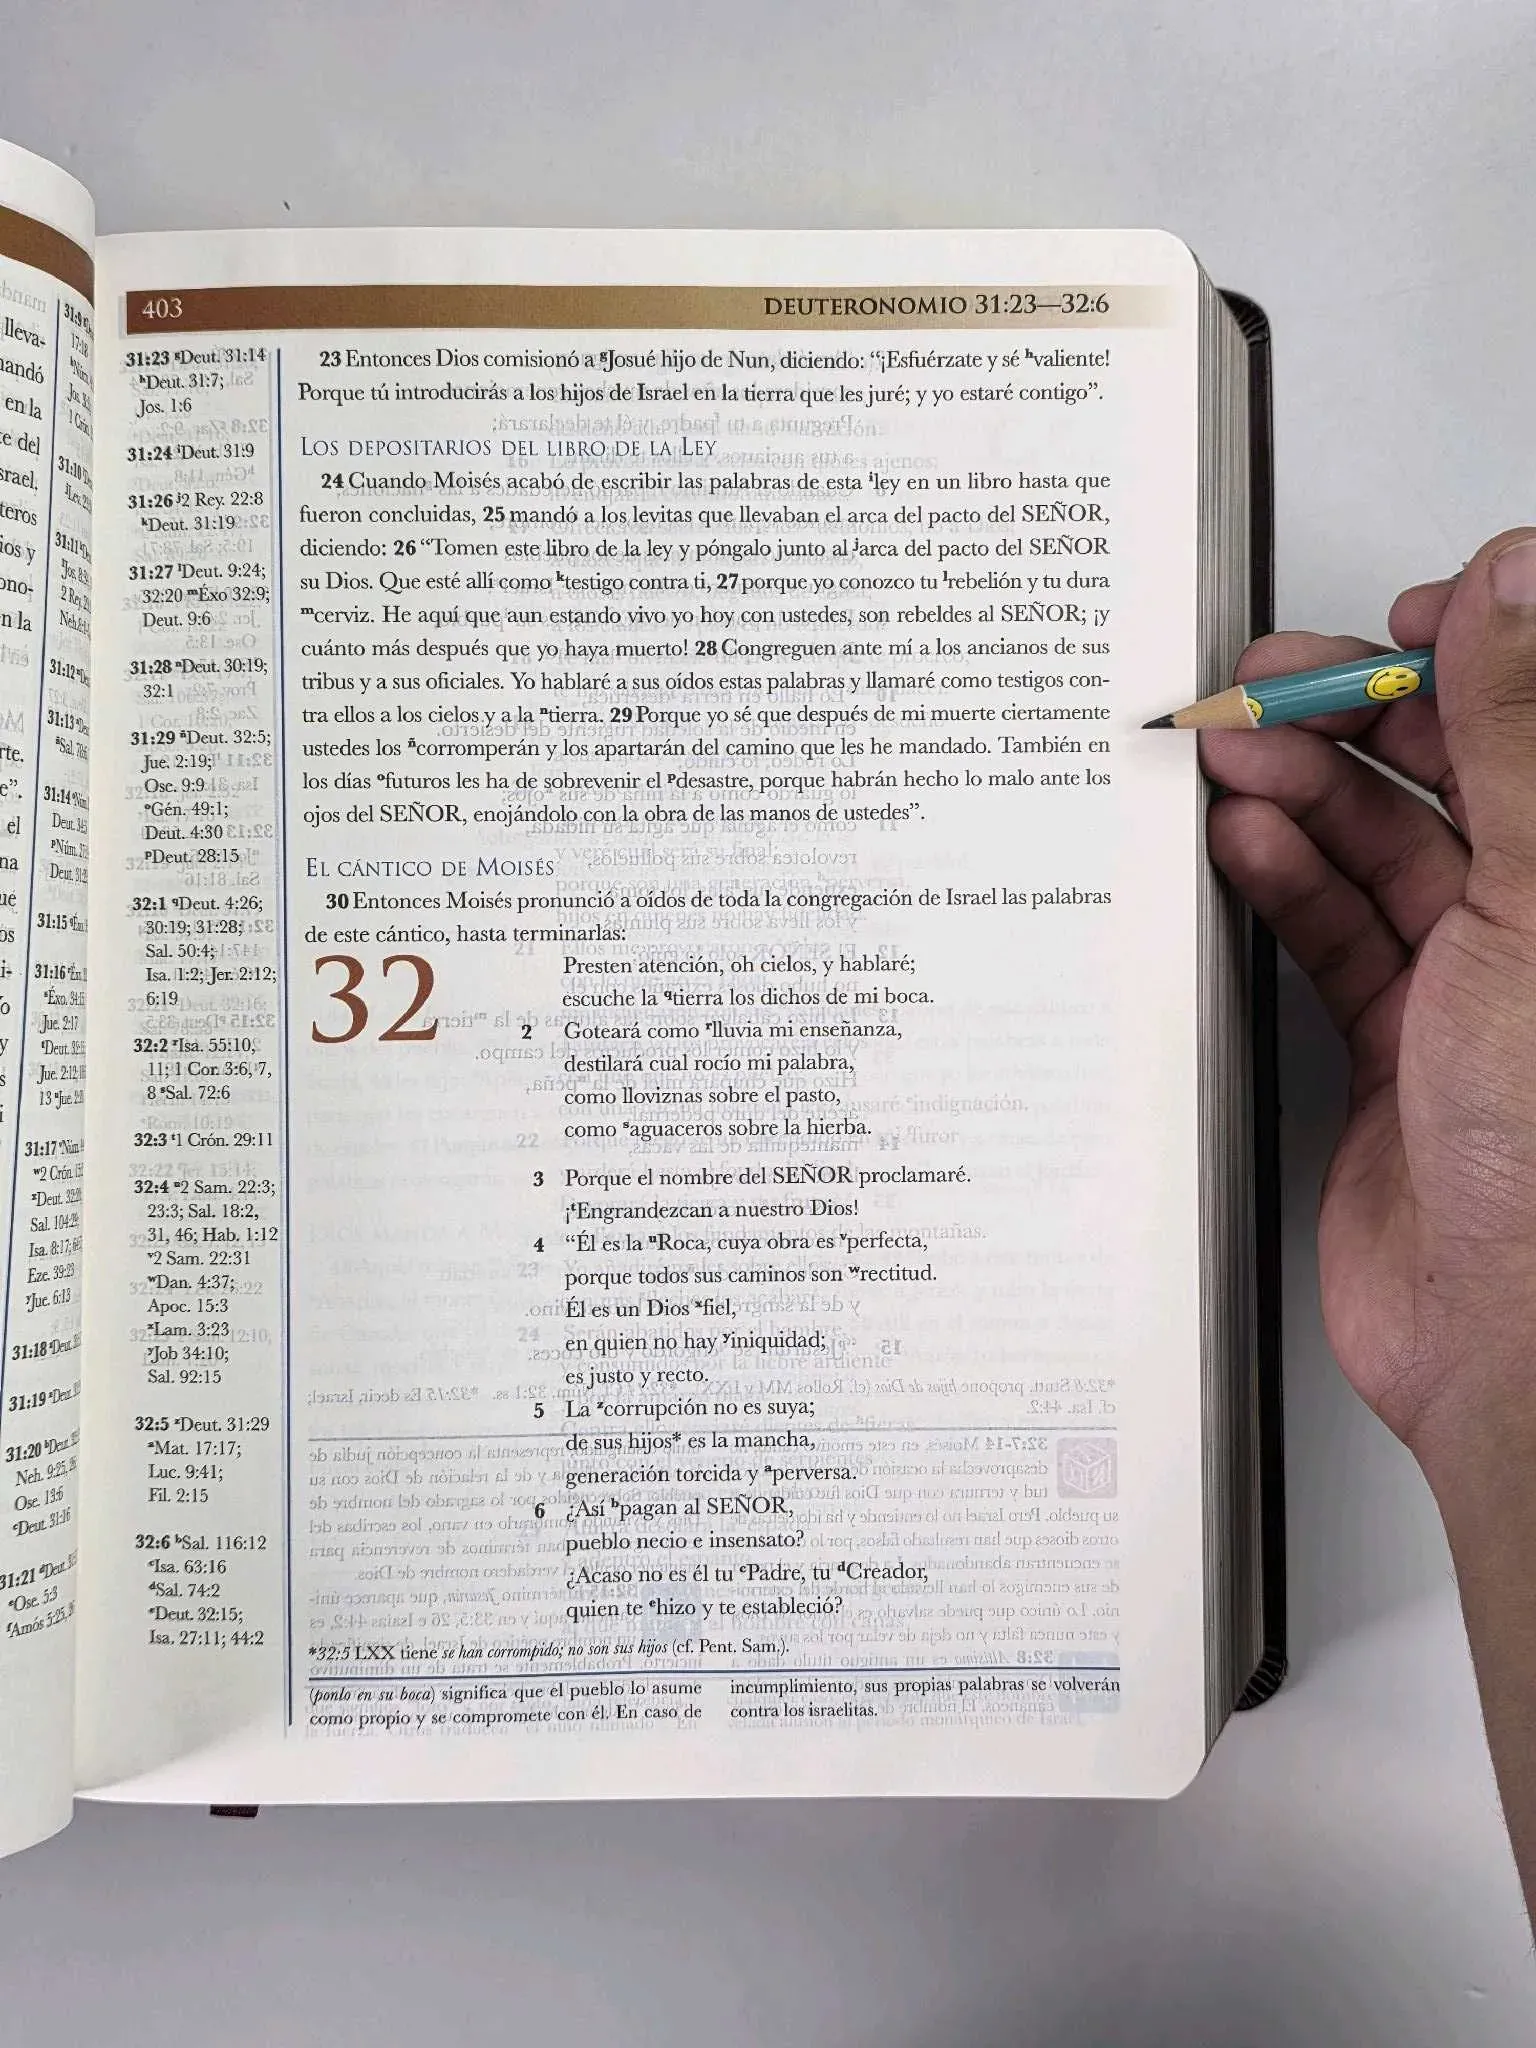 403
DEUTERONOMIO 31:23—32:6
31:23 ᵍDeut. 31:14
ʰDeut. 31:7;
Jos. 1:6
31:24 ⁱDeut. 31:9
31:26 ʲ2 Rey. 22:8
ᵏDeut. 31:19
31:27 ˡDeut. 9:24;
32:20 ᵐÉxo 32:9;
Deut. 9:6
31:28 ⁿDeut. 30:19;
32:1
31:29 ñDeut. 32:5;
Jue. 2:19;
Ose. 9:9
ᵒGén. 49:1;
Deut. 4:30
ᵖDeut. 28:15
32:1 qDeut. 4:26;
30:19; 31:28;
Sal. 50:4;
Isa. 1:2; Jer. 2:12;
6:19
32:2 ʳIsa. 55:10,
11; 1 Cor. 3:6, 7,
8 ˢSal. 72:6
32:3 ᵗ1 Crón. 29:11
32:4 ᵘ2 Sam. 22:3;
23:3; Sal. 18:2,
31, 46; Hab. 1:12
ᵛ2 Sam. 22:31
ʷDan. 4:37;
Apoc. 15:3
ˣLam. 3:23
ʸJob 34:10;
Sal. 92:15
32:5 ᶻDeut. 31:29
ᵃMat. 17:17;
Luc. 9:41;
Fil. 2:15
32:6 ᵇSal. 116:12
ᶜIsa. 63:16
ᵈSal. 74:2
ᵉDeut. 32:15;
Isa. 27:11; 44:2
23 Entonces Dios comisionó a ᵍJosué hijo de Nun, diciendo: “¡Esfuérzate y sé ʰvaliente!
Porque tú introducirás a los hijos de Israel en la tierra que les juré; y yo estaré contigo”.
LOS DEPOSITARIOS DEL LIBRO DE LA LEY
24 Cuando Moisés acabó de escribir las palabras de esta ⁱley en un libro hasta que
fueron concluidas, 25 mandó a los levitas que llevaban el arca del pacto del SEÑOR,
diciendo: 26 “Tomen este libro de la ley y póngalo junto al ʲarca del pacto del SEÑOR
su Dios. Que esté allí como ᵏtestigo contra ti, 27 porque yo conozco tu ˡrebelión y tu dura
ᵐcerviz. He aquí que aun estando vivo yo hoy con ustedes, son rebeldes al SEÑOR; ¡y
cuánto más después que yo haya muerto! 28 Congreguen ante mí a los ancianos de sus
tribus y a sus oficiales. Yo hablaré a sus oídos estas palabras y llamaré como testigos con-
tra ellos a los cielos y a la ⁿtierra. 29 Porque yo sé que después de mi muerte ciertamente
ustedes los ñcorromperán y los apartarán del camino que les he mandado. También en
los días ᵒfuturos les ha de sobrevenir el ᵖdesastre, porque habrán hecho lo malo ante los
ojos del SEÑOR, enojándolo con la obra de las manos de ustedes”.
EL CÁNTICO DE MOISÉS
30 Entonces Moisés pronunció a oídos de toda la congregación de Israel las palabras
de este cántico, hasta terminarlas:
32 Presten atención, oh cielos, y hablaré;
escuche la qtierra los dichos de mi boca.
2 Goteará como ʳlluvia mi enseñanza,
destilará cual rocío mi palabra,
como lloviznas sobre el pasto,
como ˢaguaceros sobre la hierba.
3 Porque el nombre del SEÑOR proclamaré.
¡ᵗEngrandezcan a nuestro Dios!
4 “Él es la ᵘRoca, cuya obra es ᵛperfecta,
porque todos sus caminos son ʷrectitud.
Él es un Dios ˣfiel,
en quien no hay ʸiniquidad;
es justo y recto.
5 La ᶻcorrupción no es suya;
de sus hijos* es la mancha,
generación torcida y ᵃperversa.
6 ¿Así ᵇpagan al SEÑOR,
pueblo necio e insensato?
¿Acaso no es él tu ᶜPadre, tu ᵈCreador,
quien te ᵉhizo y te estableció?
*32:5 LXX tiene se han corrompido; no son sus hijos (cf. Pent. Sam.).
(ponlo en su boca) significa que el pueblo lo asume
como propio y se compromete con él. En caso de
incumplimiento, sus propias palabras se volverán
contra los israelitas.